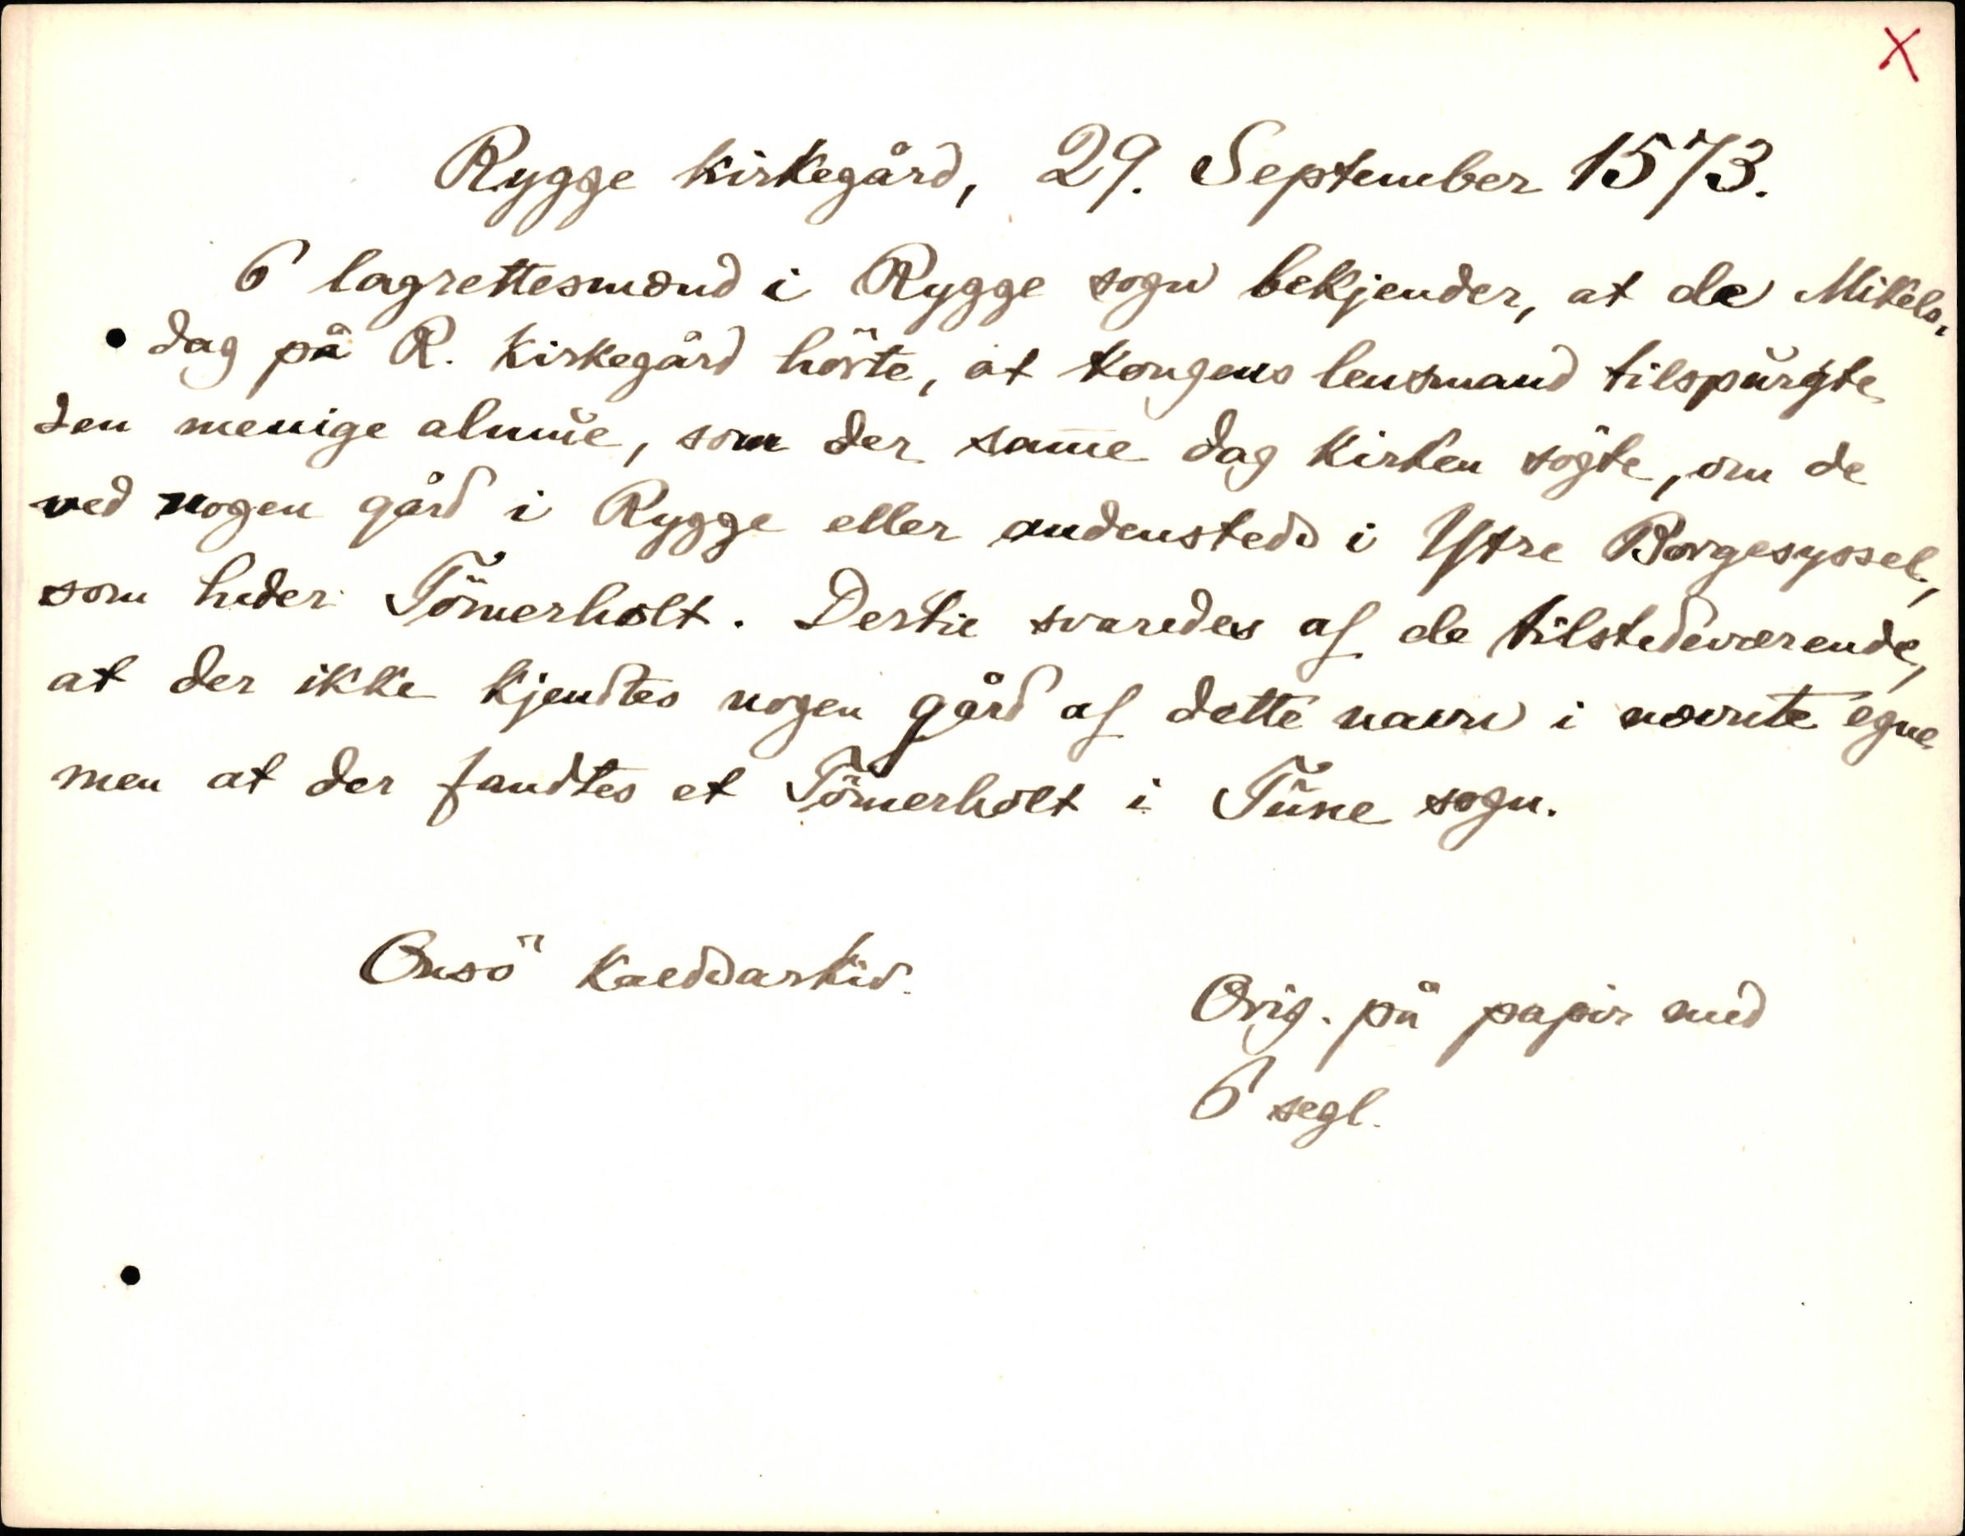 X
Rygge kirkegård, 29. September 1573.
6 lagrettesmænd i Rygge sogn bekjender, at de Mikels-
dag på R. kirkegård hörte, at kongens lensmand tilspurgte
den menige almue, som der sam̅e dag kirken sögte, om de
ved nogen gård i Rygge eller andensteds i Ytre Borgesyssel,
som heder Tömerholt. Dertil svaredes af de tilstedeværende,
at der ikke kjendtes nogen gård af dette navn i nævnte egne
men at der fandtes et Tömerholt i Tune sogn.
Onsö kaldsarkiv.
Orig. på papir med
6 segl.